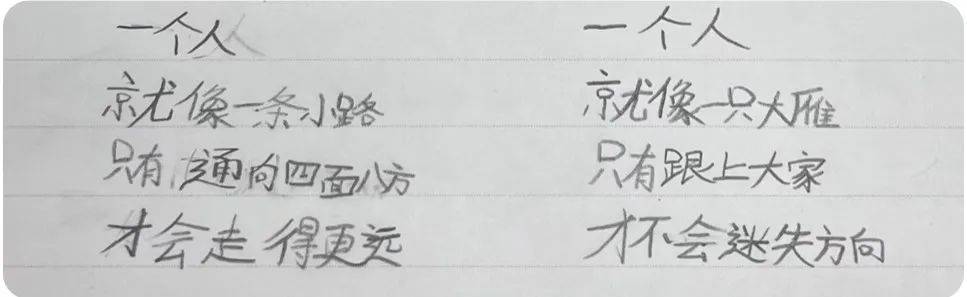 一个人
就像一条小路
只有通向四面八方
才会走得更远
一个人
就像一只大雁
只有跟上大家
才不会迷失方向